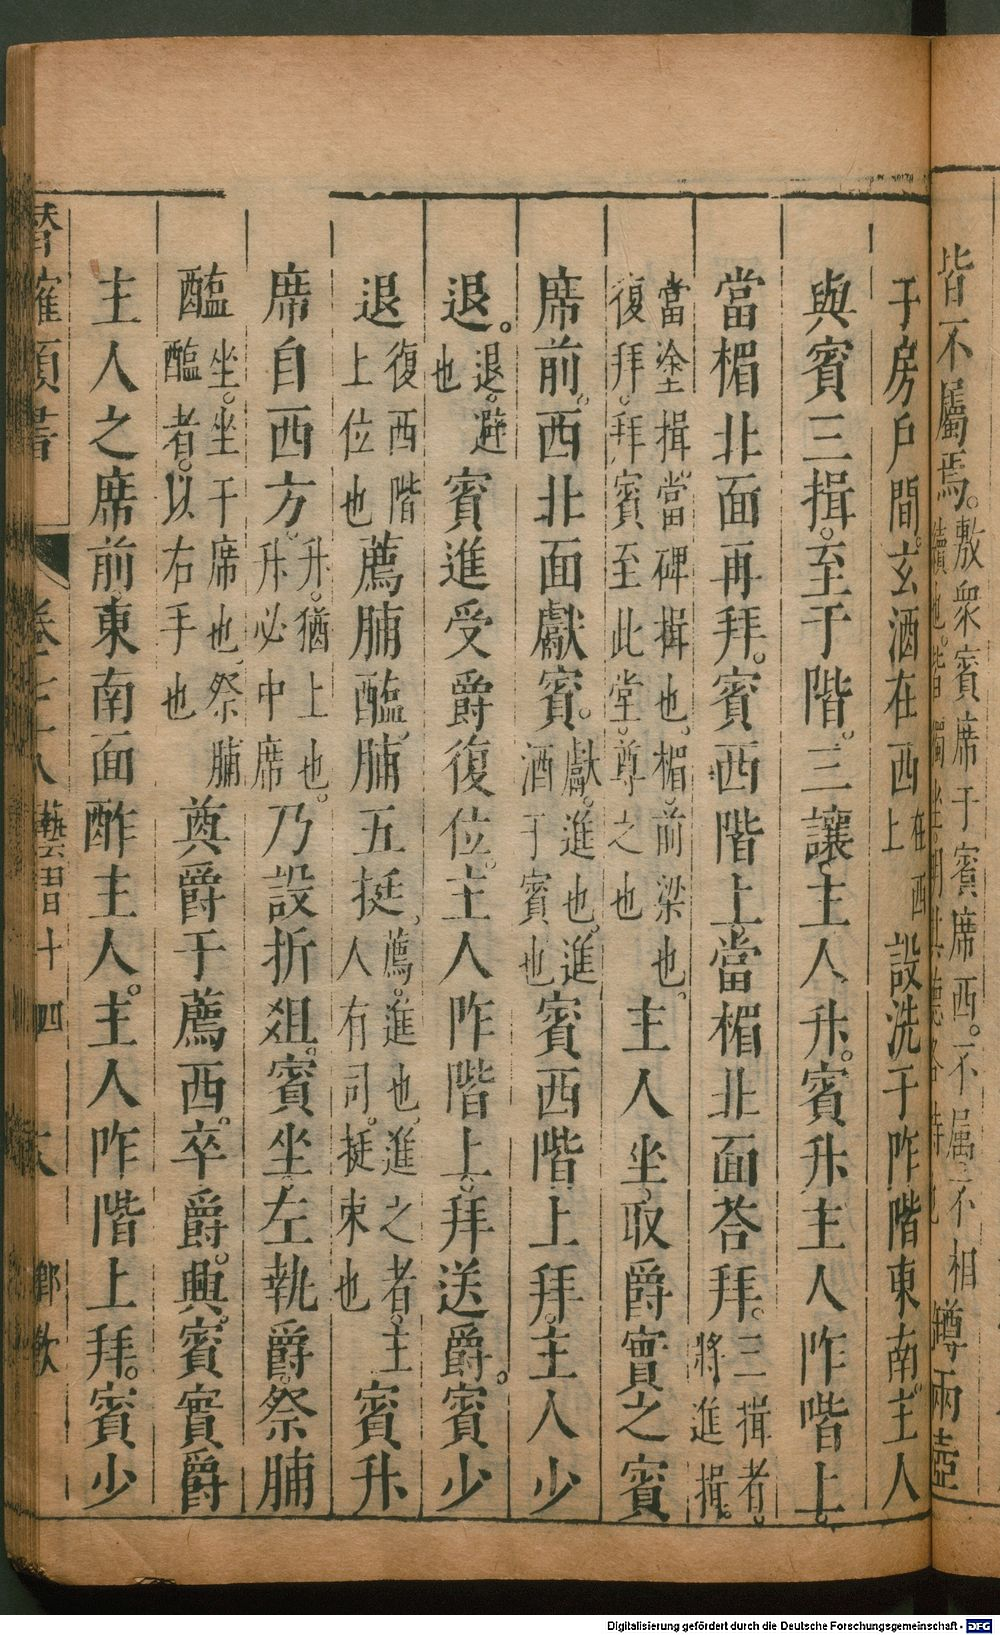 皆不屬焉。敷衆賓席于賓席西。不屬。不相續也。皆獨坐明其德各特也 罇兩壺
于房戶間。玄酒在西。在酉上 設洗于阼階東南。主人
與賓三揖。至于階。三讓主人升。賓升主人阼階上。
當楣北面再拜。賓西階上當楣北面荅拜。三揖者。將進揖。
當塗揖。當碑揖也。楣。前梁也。復拜。拜賓至此堂。尊之也 主人坐取爵實之賓
席前。西北面獻賓。獻。進也。進酒于賓也 賓西階上拜。主人少
退。退。避也 賓進受爵復位。主人阼階上。拜送爵。賓少
退 復西階上位也 薦脯醢。脯五挺。薦。進也。進之者。主人有司。挺束也 賓升
席自西方。升。猶上也。升必中席 乃設折俎。賓坐左執爵。祭脯
醢 坐。坐于席也。祭脯醢者。以右手也 奠爵于薦西。卒爵。興。賓實爵
主人之席前東南面酢主人。主人阼階上拜。賓少
潛確類書 卷 藝習十四 鄉飲
Digitalisierung gefördert durch die Deutsche Forschungsgemeinschaft - DFG